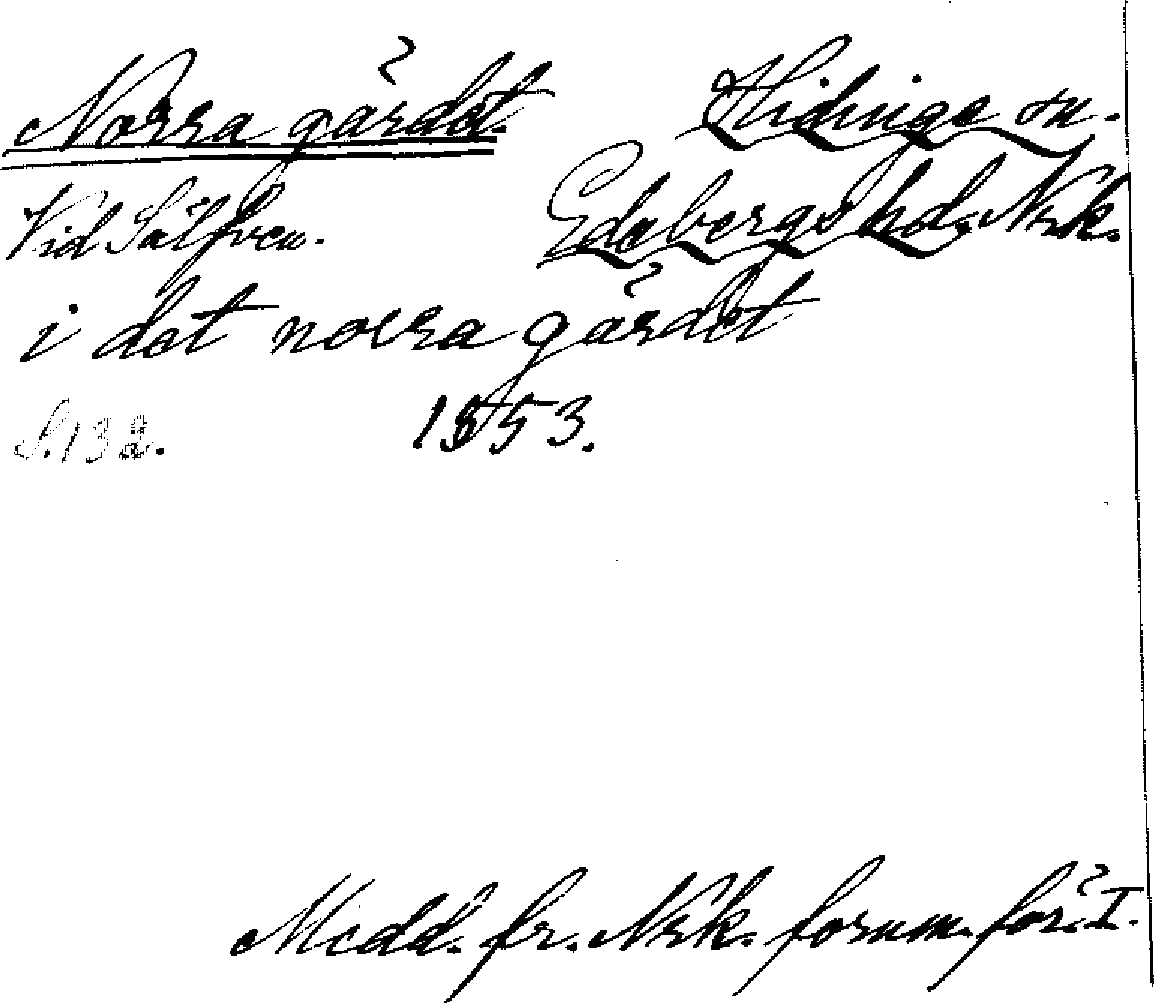 Norra gärdet. Hidinge sn.
Vid Sälfven. Edsbergs hd, Nrk.
i det norra gärdet
S. 132. 1853.
Medd. fr. Nrk. fornm. för. I.